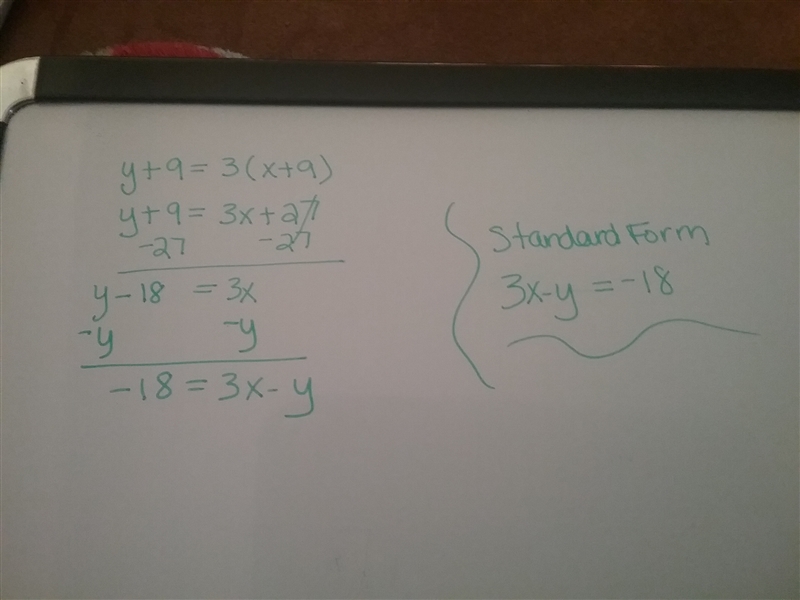 y+9 = 3(x+9)
y+9 = 3x+27
-27 -27
y-18 = 3x
-y -y
-18 = 3x-y
Standard Form
3x-y = -18